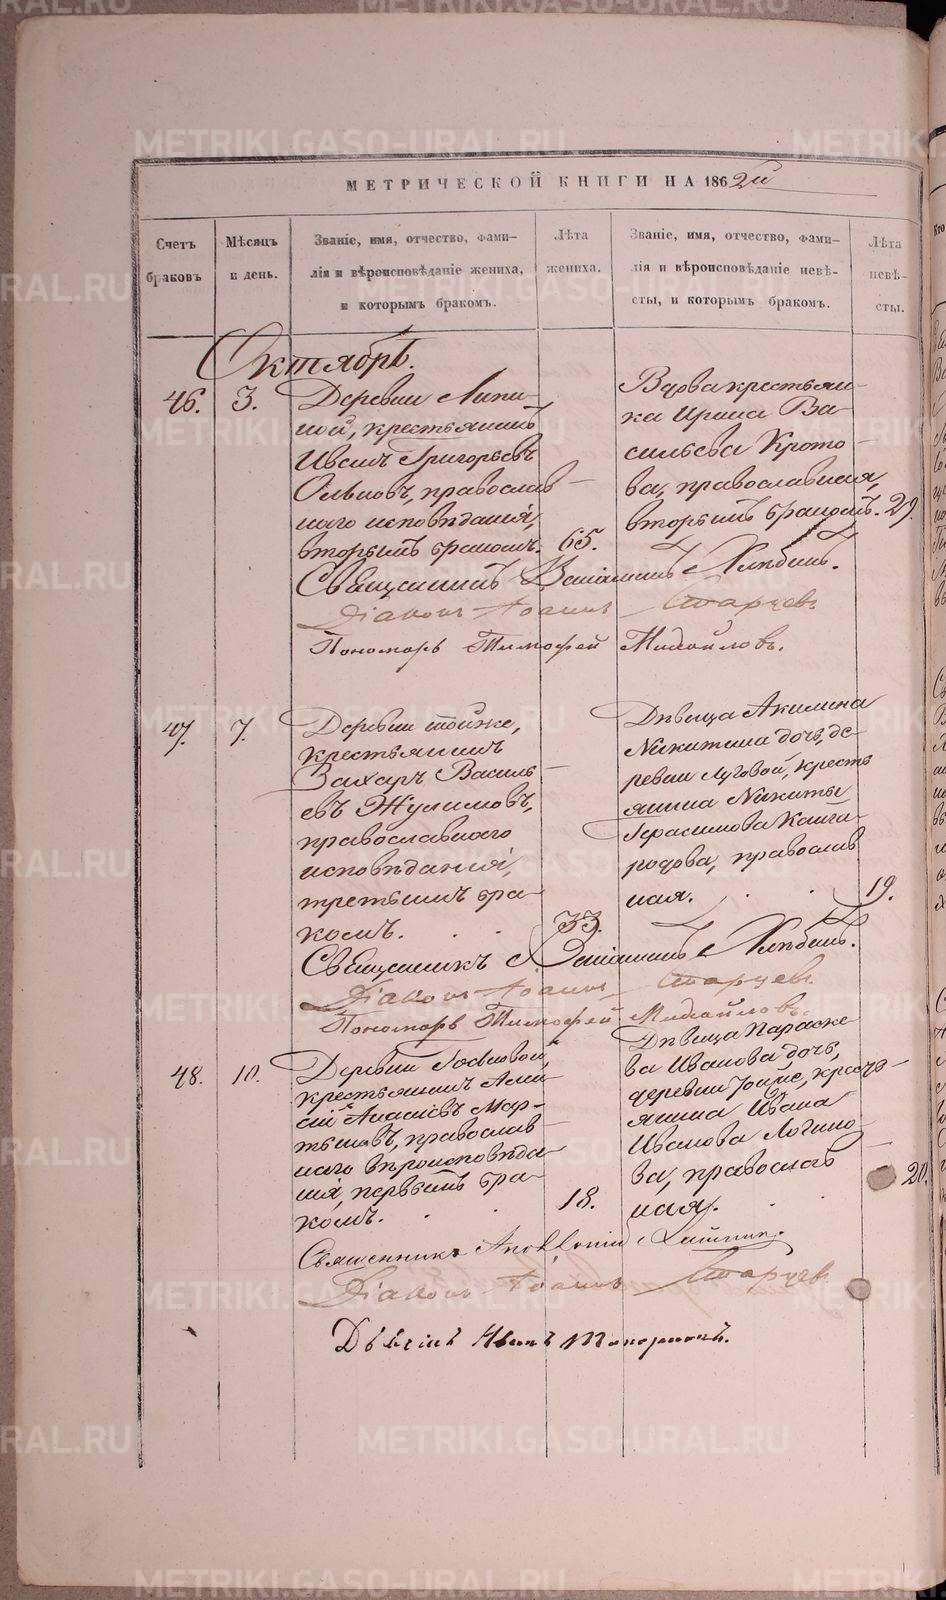 METRIKI.GASO-URAL.RU
МЕТРИЧЕСКОЙ КНИГИ НА 1862й
Счетъ браковъ
Мѣсяцъ и день.
Званіе, имя, отчество, фами-
лія и вѣроисповѣданіе жениха,
и которымъ бракомъ.
Лѣта жениха.
Званіе, имя, отчество, фами-
лія и вѣроисповѣданіе невѣ-
сты, и которымъ бракомъ.
Лѣта невѣ-
сты.
Октябрь.
46. 3.
Деревни Липи-
ной, крестьянинъ
Иванъ Григорьевъ
православ-
наго исповѣданія,
вторымъ бракомъ. 65.
Вдова крестьян-
ка Ирина Ва-
сильева Крото-
ва, православная,
вторымъ бракомъ. 29.
Священникъ Веніаминъ Хлѣбинъ.
Діаконъ Іоаннъ Старцевъ
Пономарь Тимофей Михайловъ.
47. 7.
Деревни тойже,
крестьянинъ
Захаръ Василь-
евъ Жулимовъ,
православнаго
исповѣданія,
третьимъ бра-
комъ. 33.
Дѣвица Акилина
Никитина дочь, де-
ревни Луговой, кресть
янина Никиты
Герасимова Кайга-
родова, православ
ная. 19.
Священникъ Веніаминъ Хлѣбинъ.
Діаконъ Іоаннъ Старцевъ
Пономарь Тимофей Михайловъ.
48. 10.
Деревни
крестьянинъ Алек-
сій Мар-
тыновъ, православ-
наго вѣроисповѣда-
нія, первымъ бра-
комъ. 18.
Дѣвица Параске
ва Иванова дочь,
деревни тойже, кресть-
янина Ивана
Иванова Логино-
ва, православ
ная. 20.
Священникъ
Діаконъ Іоаннъ Старцевъ
Иванъ